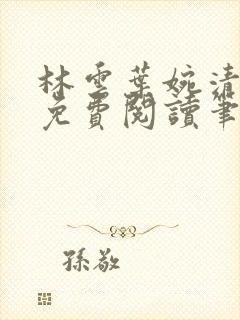 林雲葉婉清
免費閱讀筆
孫敬